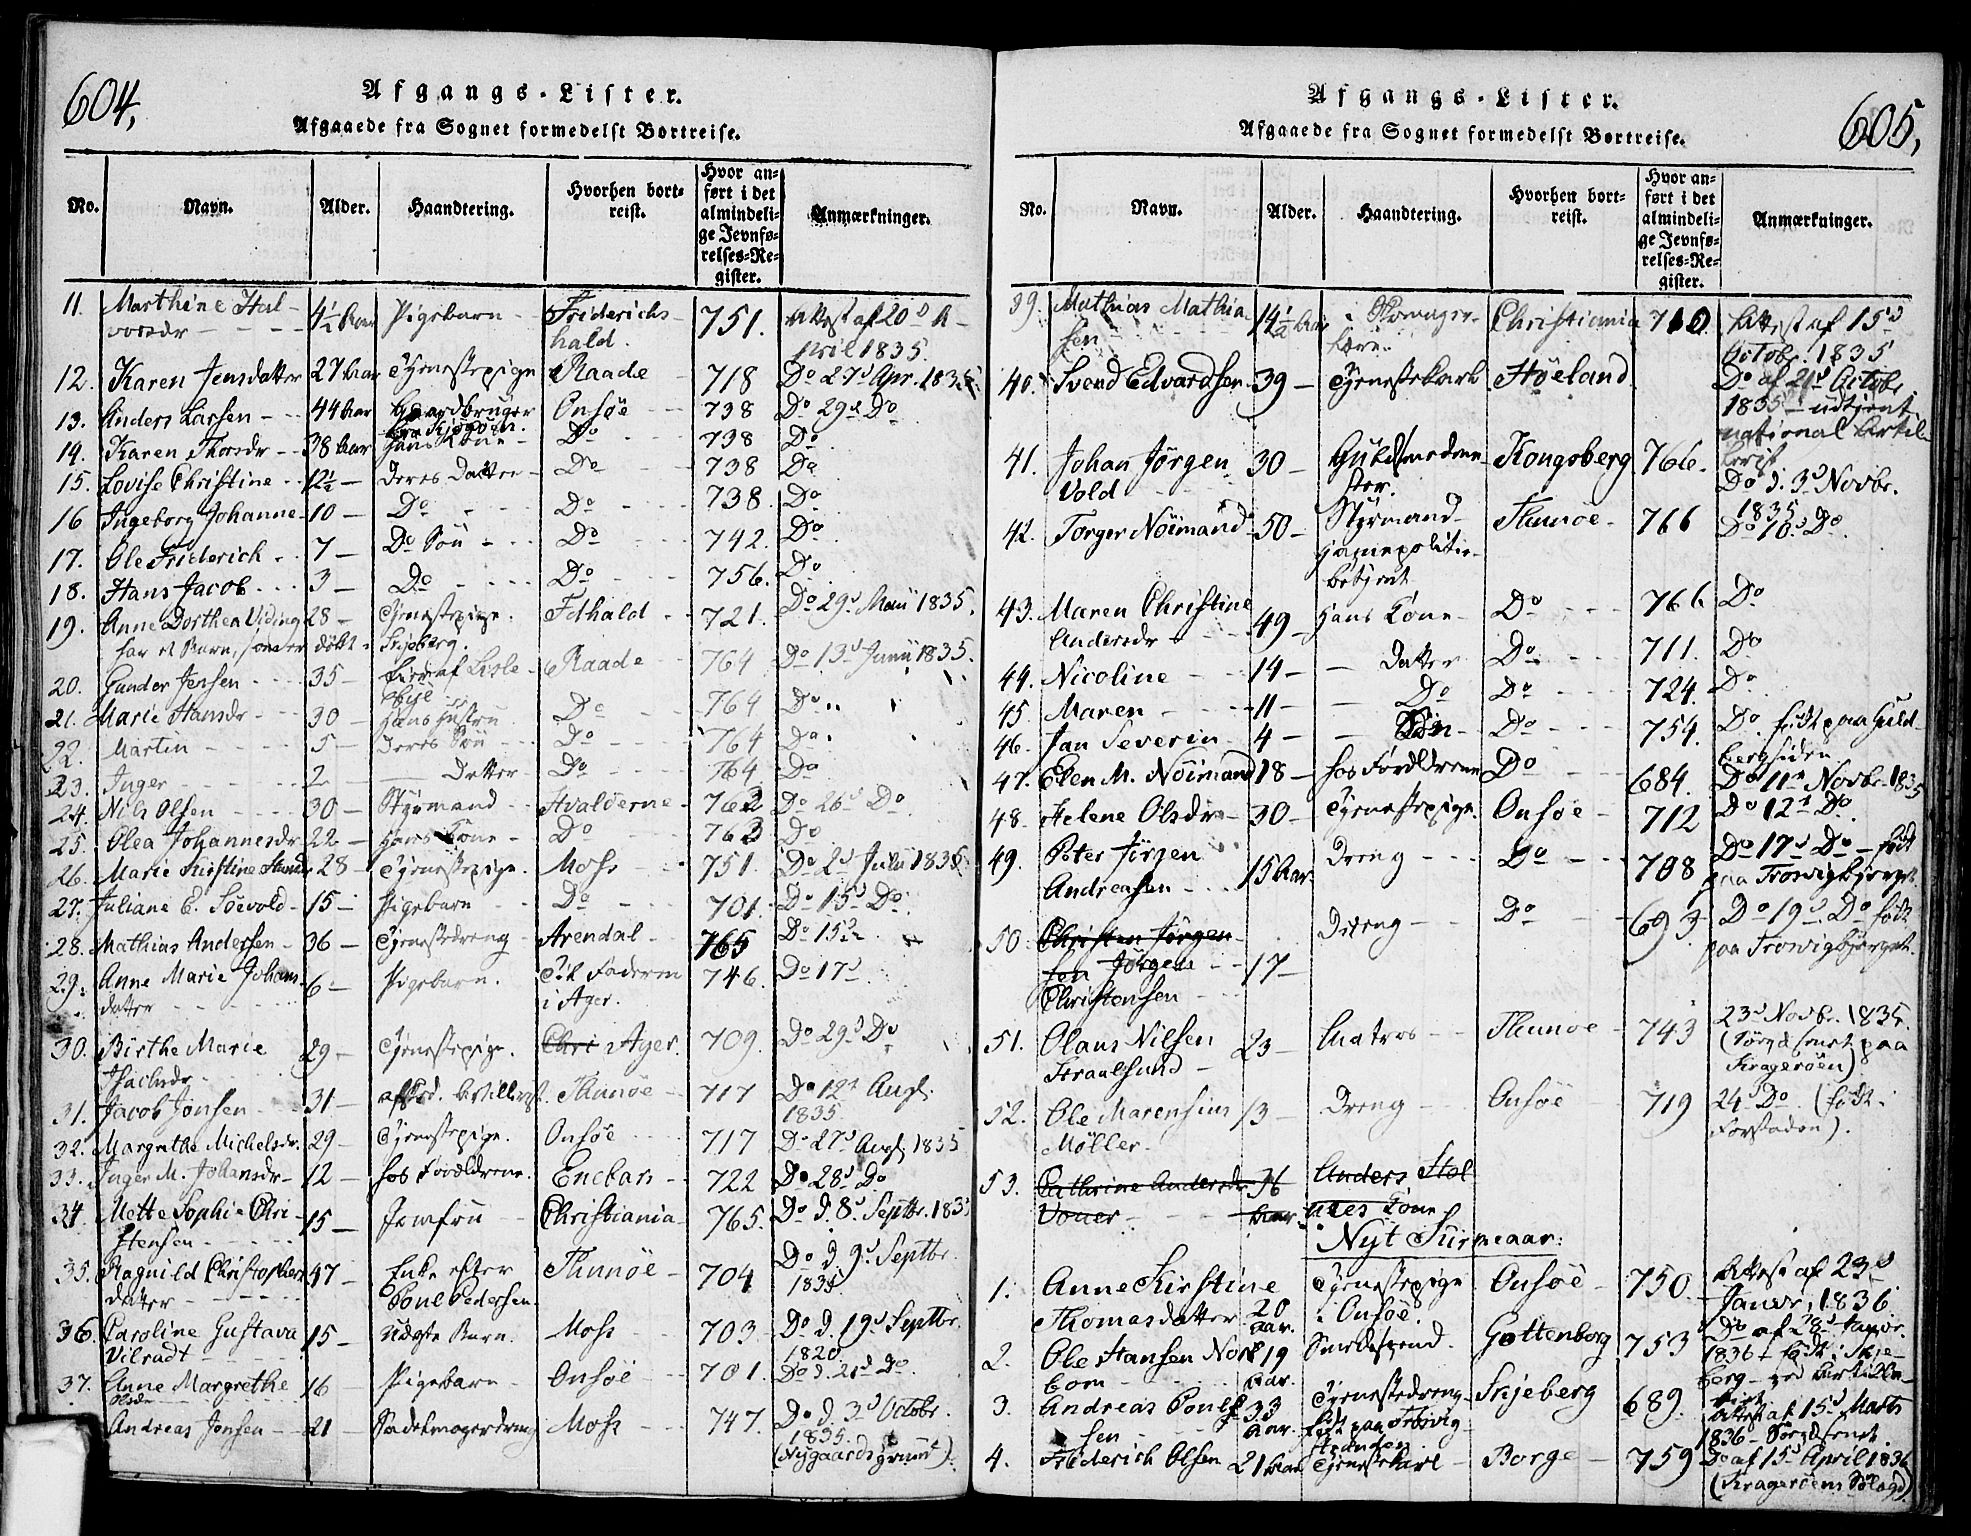 604,
Afgangs-Lister.
Afgaaede fra Sognet formedelst Bortreise.
No. Navn. Alder. Haandtering. Hvorhen bortreist. Hvor anført i det almindelige Jevnførelses-Register. Anmærkninger.
11. Marthine Halvorsdr 4½ Aar Pigebarn Friderichshald. 751. Attest af 20d April 1835.
12. Karen Jensdatter 27 Aar Tjenestepige Raade 718 Do 27d Apr. 1835
13. Anders Larsen 44 Aar Gaardbruger Onsöe 738 Do 29d Do
14. Karen Thorsdr 38 Aar Hans Kone Do 738 Do
15. Lovise Christine 12½ Deres Datter Do 738 Do
16 Ingeborg Johanne 10 Do Do 738. Do
17. Ole Friderich 7 Do Sön Do 742. Do
18. Hans Jacob 3 Do Do 756. Do
19. Anne Dorthea Viding 28 Tjenestepige. Fdhald 721. Do 29d Maii 1835.
har et Barn, som er döbt i Skjeberg.
20. Gunder Jensen 35 Raade 764 Do 13d Junii 1835.
21. Marie Hansdr 30 Hans Hustru Do 764 Do
22. Martin 5 Deres Sön Do 764 Do
23. Inger 2 Datter Do 764 Do
24. Nils Olsen 30 Styrmand Hvalöerne 762 Do 26d Do
25. Olea Johannesdr 22 Hans Kone Do 763 Do
26. Marie Kirstine 28 Tjenestepige. Moss 751. Do 2d Julii 1835
27. Juliane E. Söevold 15 Pigebarn Do 701. Do 15d Do
28. Mathias Andersen 36 Tjenestedreng Arendal 765 Do 15d
29. Anne Marie Johansdatter 6 Pigebarn. Til Faderen i Ager. 746. Do 17d
30. Birthe Marie Isachsdr 29 Tjenestepige. Chri Ager. 709. Do 29d Do
31. Jacob Jonsen 31 afsked. Artillerist Thunöe 717 Do 12d Augs. 1835
32. Margrethe Michelsdr. 29 Tjenestepige. Onsöe 717 Do 27d Augs 1835
33. Inger M. Johansdr 12 hos Forældrene. Enebak 722 Do 28d Do
34. Mette Sophie Christensen 15 Jomfru Christiania 765. Do d. 8d Septbr. 1835
35. Ragnild Christophersdatter 47 Enke efter Poul Pedersen. Thunöe 704 Do d. 9d Septbr. 1835
36. Caroline Gustava Vilradt 15 Uægte Barn. Moss 703 Do d. 19d Septbr. 1820
37. Anne Margrethe Olsdr 16 Pigebarn Onsöe 701. Do d. 21d Do
Andreas Jonsen 21 Sadelmagerdreng Moss 747. Do d. 3d Octobr. 1835. (Nygaards grund).
605,
Afgangs-Lister.
Afgaaede fra Sognet formedelst Bortreise.
No. Navn. Alder. Haandtering. Hvorhen bortreist. Hvor anført i det almindelige Jevnførelses-Register. Anmærkninger.
39. Mathias Mathiasen 14½ Aar Christiania 710 Attest af 15d Octobr. 1835
40. Svend Edvardsen 39 Tjenestekarl Höeland Do af 21d Octobr 1835 udtjent national Artillerist
41. Johan Jörgen Vold 30 Kongsberg 766. Do d. 3d Novbr. 1835
42. Torger Nöimand 50 Styrmand Thunöe 766 Do 10d Do
43. Maren Christine Andersdr 49 Hans Kone Do 766 Do
44. Nicoline 14 Datter Do 711. Do
45. Maren 11 Do Do 724. Do
46. Jan Severin 4 Sön Do 754. Do födt paa Guldbergsiden
47. Elen M. Nöimand 18 hos Forældrene Do 684. Do 11te Novbr. 1835
48. Helene Olsdr 30 Tjenestepige. Onsöe 712 Do 12d Do
49. Peter Jörgen Andreasen 15 Aar. Dreng Do 708 Do 17d Do födt paa Trosvigbjerget
50. Christen Jörgensen Jörgen Christensen 17 Dreng Do 693 Do 19d Do födt paa Trosvigbjerget
51. Olaus Nilsen Straalsund 23 Matros Thunöe 743 23d Novbr. 1835. paa Kragerøen)
52. Ole Marensius Møller 13 Dreng Onsöe 719 24d Do (födt i Forstaden).
53. Cathrine Andersdr 36 Aar Anders Kone
Nyt Kirkeaar:
1. Anne Kirstine Thomasdatter 20 Aar. Tjenestepige i Onsöe. Onsöe 750 Attest af 23d Januar, 1836.
2. Ole Hansen 19 Aar. Smedsvend. Gottenborg 753 Do af 28d Janvr. 1836 födt i Skjeberg
3. Andreas Poulsen 33 Aar. Tjenestedreng födt paa Trosvigstranden Skjeberg 689. Attest af 15d Marts 1836
4. Friderich Olsen 21 Aar Tjenestekarl Borge 759 Do af 15d April 1836 (Kragerøens